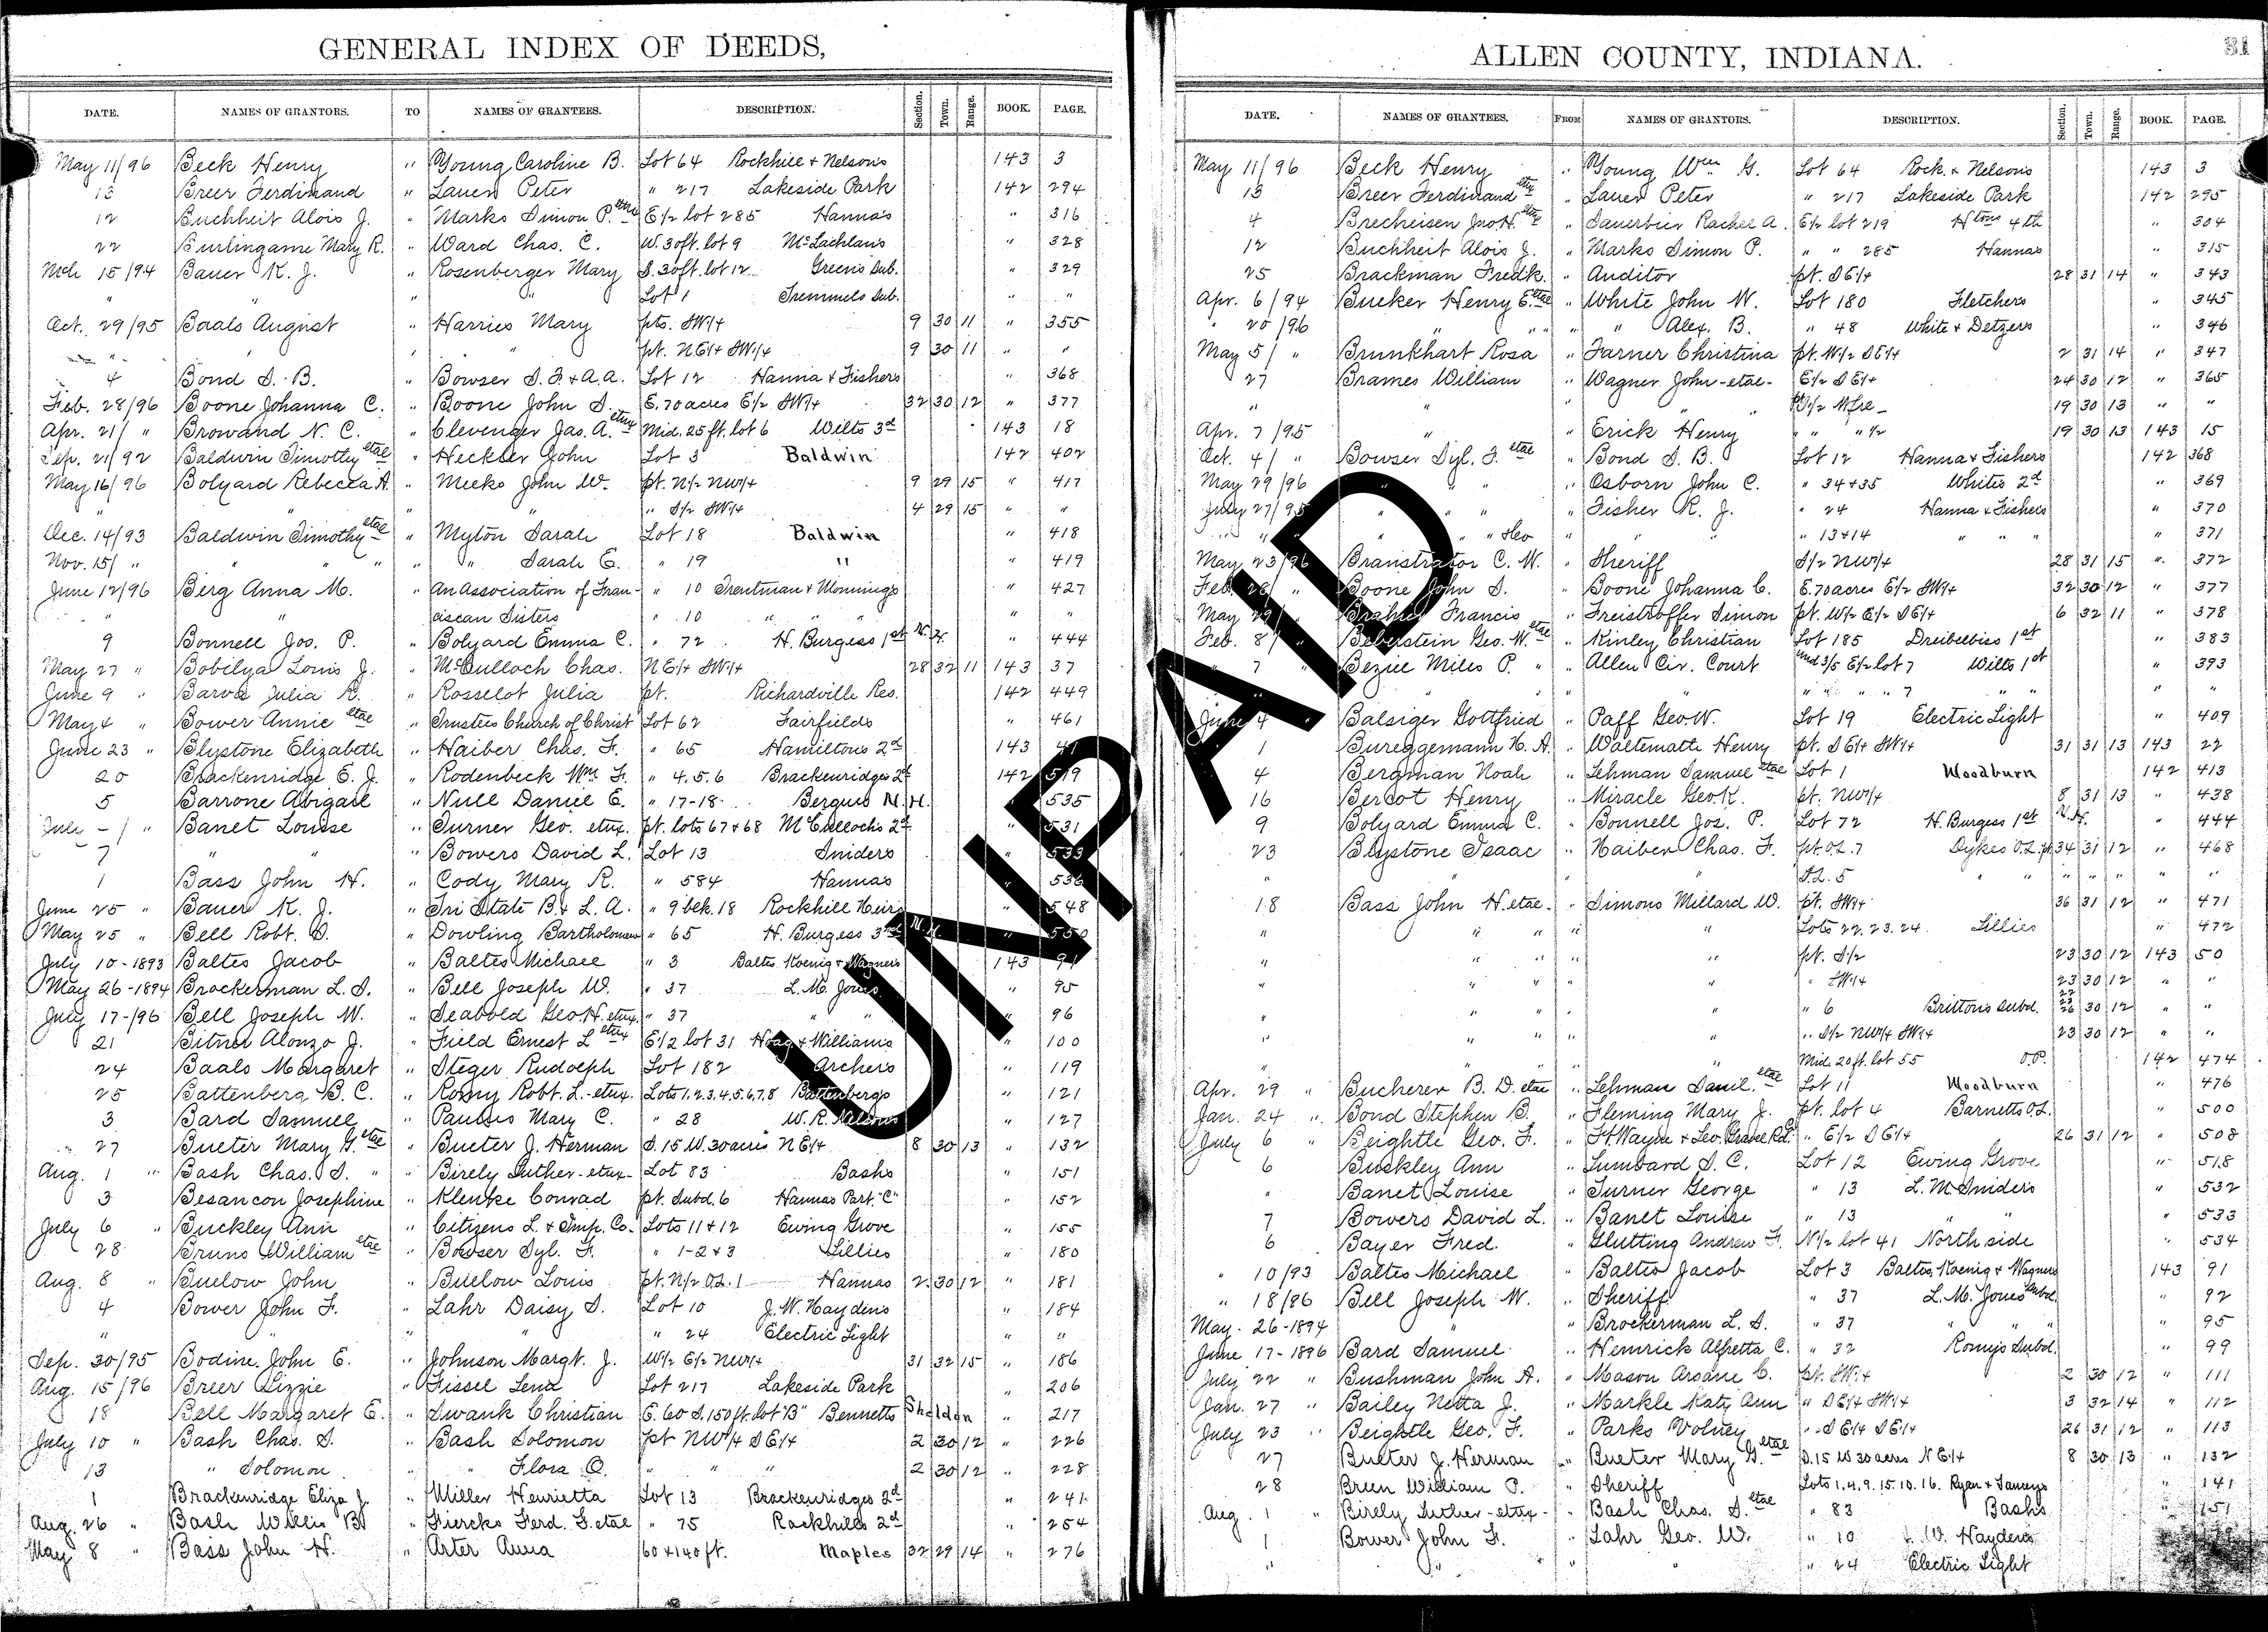 GENERAL INDEX OF DEEDS,
DATE. NAMES OF GRANTORS. TO NAMES OF GRANTEES. DESCRIPTION. Section. Town. Range. BOOK. PAGE.
May 11/96 Beck Henry " Young Caroline B. Lot 64 Rockhill & Nelsons 143 3
13 Breer Ferdinand " Lauer Peter " 217 Lakeside Park 142 294
12 Buchheit Alois J. " Marks Simon P. etux E1/2 lot 285 Hannas " 316
22 Burlingame Mary R. " Ward Chas. C. W. 30ft. lot 9 McLachlans " 328
Mch 15/94 Bauer K. J. " Rosenberger Mary S. 30ft. lot 12 Greens Sub. " 329
" " " " Lot 1 Tremmels Sub. " "
Oct. 29/95 Baals August " Harries Mary pts. SW1/4 9 30 11 " 355
" " " pt. NE1/4 SW1/4 9 30 11 " "
4 Bond S. B. " Bowser S. F. & A. A. Lot 12 Hanna & Fishers " 368
Feb. 28/96 Boone Johanna C. " Boone John S. E. 70 acres E1/2 SW1/4 32 30 12 " 377
Apr. 21/ " Browand N. C. " Clevenger Jas. A. etux Mid. 25 ft. lot 6 Wilts 3d 143 18
Sep. 21/92 Baldwin Timothy etal " Heckler John Lot 3 Baldwin 142 402
May 16/96 Bolyard Rebecca A. " Meeks John W. pt. N1/2 NW1/4 9 29 15 " 417
" " " " " S1/2 SW1/4 4 29 15 " "
Dec. 14/93 Baldwin Timothy etal " Myton Sarah Lot 18 Baldwin " 418
Nov. 15/ " " " " " Sarah E. " 19 " " 419
June 12/96 Berg Anna M. " An Association of Fran- " 10 Trentman & Monnings " 427
" " ciscan Sisters " 10 " " " "
9 Bonnell Jos. P. " Bolyard Emma C. " 72 H. Burgess 1st N. H. " 444
May 27 " Bobilya Louis J. " McCulloch Chas. NE1/4 SW1/4 28 32 11 143 37
June 9 " Barva Julia R. " Rosselot Julia pt. Richardville Res. 142 449
May 4 " Bower Annie etal " Trustees Church of Christ Lot 62 Fairfields " 461
June 23 " Blystone Elizabeth " Haiber Chas. F. " 65 Hamiltons 2d 143 41
20 Brackenridge E. J. " Rodenbeck Wm F. " 4. 5. 6 Brackenridges 2d 142 519
5 Barrone Abigail " Null Daniel E. " 17-18 Berques N. H. " 535
July - / " Banet Louise " Turner Geo. etux. pt. lots 67 & 68 McCullochs 2d " 531
7 " " " Bowers David L. Lot 13 Sniders " 533
1 Bass John H. " Cody Mary R. " 584 Hannas " 536
June 25 " Bauer K. J. " Tri State B. & L. A. " 9 blk. 18 Rockhill Heirs " 548
May 25 " Bell Robt. D. " Dowling Bartholomew " 65 H. Burgess 3rd N. H. " 550
July 10-1893 Baltes Jacob " Baltes Michael " 3 Baltes Koenig & Wagners 143 91
May 26-1894 Brockerman L. S. " Bell Joseph W. " 37 L. M. Jones " 95
July 17-/96 Bell Joseph W. " Seabold Geo. H. etux. " 37 " " " 96
21 Bitner Alonzo J. " Field Ernest L etux E1/2 lot 31 Hoag & Williams " 100
24 Baals Margaret " Steger Rudolph Lot 182 Archers " 119
25 Battenberg B. C. " Romy Robt. L. etux. Lots 1, 2, 3, 4, 5, 6, 7, 8 Battenbergs " 121
3 Bard Samuel " Paulus Mary C. " 28 W. R. Nelsons " 127
27 Bueter Mary G. etal " Bueter J. Herman S. 15 W. 30 acres NE1/4 8 30 13 " 132
Aug. 1 " Bash Chas. S. " " Birely Luther-etux- Lot 83 Bashs " 151
3 Besancon Josephine " Klenke Conrad pt. Subd. 6 Hannas Part "C" " 152
July 6 " Buckley Ann " Citizens L. & Imp. Co. Lots 11 & 12 Ewing Grove " 155
28 Bruns William etal " Bowser Syl. F. " 1-2 & 3 Lillies " 180
Aug. 8 " Buelow John " Buelow Louis pt. N1/2 O.L. 1 Hannas 2 30 12 " 181
4 Bower John F. " Lahr Daisy S. Lot 10 J. W. Haydens " 184
" " " " " 24 Electric Light " "
Sep. 30/95 Bodine John E. " Johnson Margt. J. W1/2 E1/2 NW1/4 31 32 15 " 186
Aug. 15/96 Breer Lizzie " Fissel Lena Lot 217 Lakeside Park " 206
18 Bell Margaret E. " Swank Christian E. 60 S. 150 ft. lot "B" Bennetts Sheldon " 217
July 10 " Bash Chas. S. " Bash Solomon pt NW1/4 SE1/4 2 30 12 " 226
13 " Solomon " " Flora O. " " " 2 30 12 " 228
1 Brackenridge Eliza J. " Miller Henrietta Lot 13 Brackenridges 2d " 241
Aug. 26 " Bash Willis B. " Fiercks Ferd. F. etal " 75 Rockhills 2d " 254
May 8 " Bass John H. " Arter Anna 60 x 140 ft. Maples 32 29 14 " 276
ALLEN COUNTY, INDIANA. 31
DATE. NAMES OF GRANTEES. FROM NAMES OF GRANTORS. DESCRIPTION. Section. Town. Range. BOOK. PAGE.
May 11/96 Beck Henry " Young Wm G. Lot 64 Rock. & Nelsons 143 3
13 Breer Ferdinand etux " Lauer Peter " 217 Lakeside Park 142 295
4 Brecheisen Jno. H. etux " Sauerbier Rachel A. E1/2 lot 219 Htns 4th " 304
12 Buchheit Alois J. " Marks Simon P. " " 285 Hannas " 315
25 Brackman Fredk. " Auditor pt. SE1/4 28 31 14 " 343
Apr. 6/94 Bucker Henry E. etal " White John W. Lot 180 Fletchers " 345
" 25/96 " " " " Alex. B. " 48 White & Detzers " 346
May 5/ " Brunkhart Rosa " Farner Christina pt. W1/2 SE1/4 2 31 14 " 347
27 Brames William " Wagner John-etal- E1/2 SE1/4 24 30 12 " 365
" " " " 19 30 13 " "
Apr. 7/95 " " Erick Henry " " 1/2 19 30 13 143 15
Oct. 4/ " Bowser Syl. F. etal " Bond S. B. Lot 12 Hanna & Fishers 142 368
May 29/96 " " " Osborn John C. " 34 & 35 Whites 2d " 369
July 27/95 " " " Fisher R. J. " 24 Hanna & Fishers " 370
" " " Geo " " " 13 & 14 " " " " 371
May 23/96 Branstrator C. W. " Sheriff S1/2 NW1/4 28 31 15 " 372
Feb. 28/ " Boone John S. " Boone Johanna C. E. 70 acres E1/2 SW1/4 32 30 12 " 377
May 29/ " Francis " Freistroffer Simon pt. W1/2 E1/2 SE1/4 6 32 11 " 378
Feb. 8/ " Beberstein Geo. W. etal " Kinley Christian Lot 185 Dreibelbiss 1st " 383
" 7 " Beziel Miles P. " Allen Cir. Court und 3/5 E1/2 lot 7 Wilts 1st " 393
" " " " " " " 7 " " " "
June 4 Balsiger Gottfried " Paff Geo. W. Lot 19 Electric Light " 409
1 Bureggemann H. A. " Waltemath Henry pt. SE1/4 SW1/4 31 31 13 143 22
4 Bergman Noah " Lehman Samuel etal Lot 1 Woodburn 142 413
16 Bercot Henry " Miracle Geo. K. pt. NW1/4 8 31 13 " 438
9 Bolyard Emma C. " Bonnell Jos. P. Lot 72 H. Burgess 1st N. H. " 444
23 Blystone Isaac " Haiber Chas. F. pt. O.L. 7 Dykes O.L. pt 34 31 12 " 468
" " O.L. 5 " " " " " "
18 Bass John H. etal- " Simons Millard W. pt. SW1/4 36 31 12 " 471
" " " " " " Lots 22, 23, 24 Lillies " 472
" " " " " " pt. S1/2 23 30 12 143 50
" " " SW1/4 23 30 12 " "
" " " " " 6 Brittons Subd. 26 30 12 " "
" " " " " " S1/2 NW1/4 SW1/4 23 30 12 " "
" " " Mid. 20 ft. lot 55 O.P. 142 474
Apr. 29 " Bucherer B. D. etal " Lehman Daniel etal Lot 11 Woodburn " 476
Jan. 24 " Bond Stephen B. " Fleming Mary J. pt. lot 4 Barnetts O.L. " 500
July 6 " Beightle Geo. F. " Ft. Wayne & Leo. Gravel Rd. " E1/2 SE1/4 26 31 12 " 508
6 Buckley Ann " Lumbard S. C. Lot 12 Ewing Grove " 518
" Banet Louise " Turner George " 13 L. M. Sniders " 532
7 Bowers David L. " Banet Louise " 13 " " " 533
6 Bayer Fred. " Glutting Andrew F. N1/2 lot 41 North side " 534
" 10/93 Baltes Michael " Baltes Jacob Lot 3 Baltes, Koenig & Wagners 143 91
" 18/86 Bell Joseph W. " Sheriff " 37 L. M. Jones Subd. " 92
May 26-1894 " " " Brockerman L. S. " 37 " " " 95
June 17-1896 Bard Samuel " Hemrick Alfretta C. " 32 Romys Subd. " 99
July 22 " Bushman John A. " Mason Arsane C. pt. SW1/4 2 30 12 " 111
Jan. 27 " Bailey Netta J. " Markle Katy Ann " SE1/4 SW1/4 3 32 14 " 112
July 23 " Beightle Geo. F. " Parks Volney " SE1/4 SE1/4 26 31 12 " 113
27 Bueter J. Herman " Bueter Mary G. etal S. 15 W 30 acres NE1/4 8 30 13 " 132
28 Breen William P. " Sheriff Lots 1, 4, 9, 15, 10, 16. Ryan & " 141
Aug. 1 " Birely Luther-etux- " Bash Chas. S. etal " 83 Bashs " 151
1 Bower John F. " Lahr Geo. W. " 10 J. W. Haydens
" " " " 24 Electric Light
UNPAID